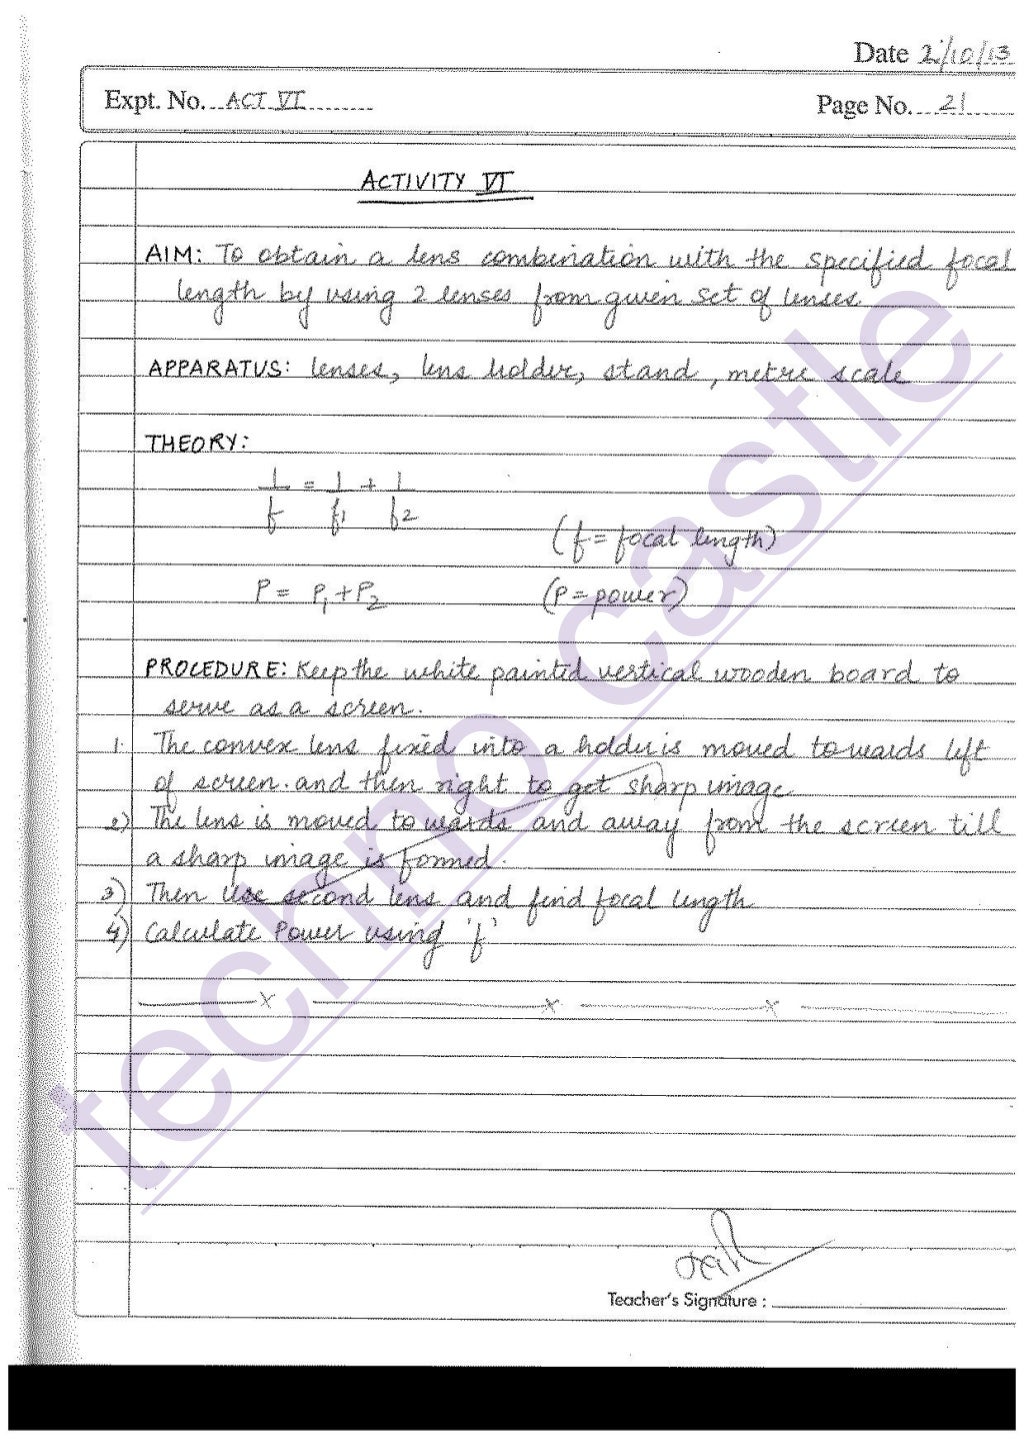 Date 2/10/13
Expt. No. ACT VI
Page No. 21
ACTIVITY VI
AIM: To obtain a lens combination with the specified focal
length by using 2 lenses from given set of lenses.
APPARATUS: lenses, lens holder, stand, metre scale
THEORY:
1/f = 1/f1 + 1/f2
(f = focal length)
P = P1 + P2 (P = power)
PROCEDURE: Keep the white painted vertical wooden board to
serve as a screen.
1. The convex lens fixed into a holder is moved towards left
of screen. and then right to get sharp image
2) The lens is moved towards and away from the screen till
a sharp image is formed.
3) Then use second lens and find focal length
4) Calculate Power using 'f'
x x x
techno castle
Teacher's Signature :